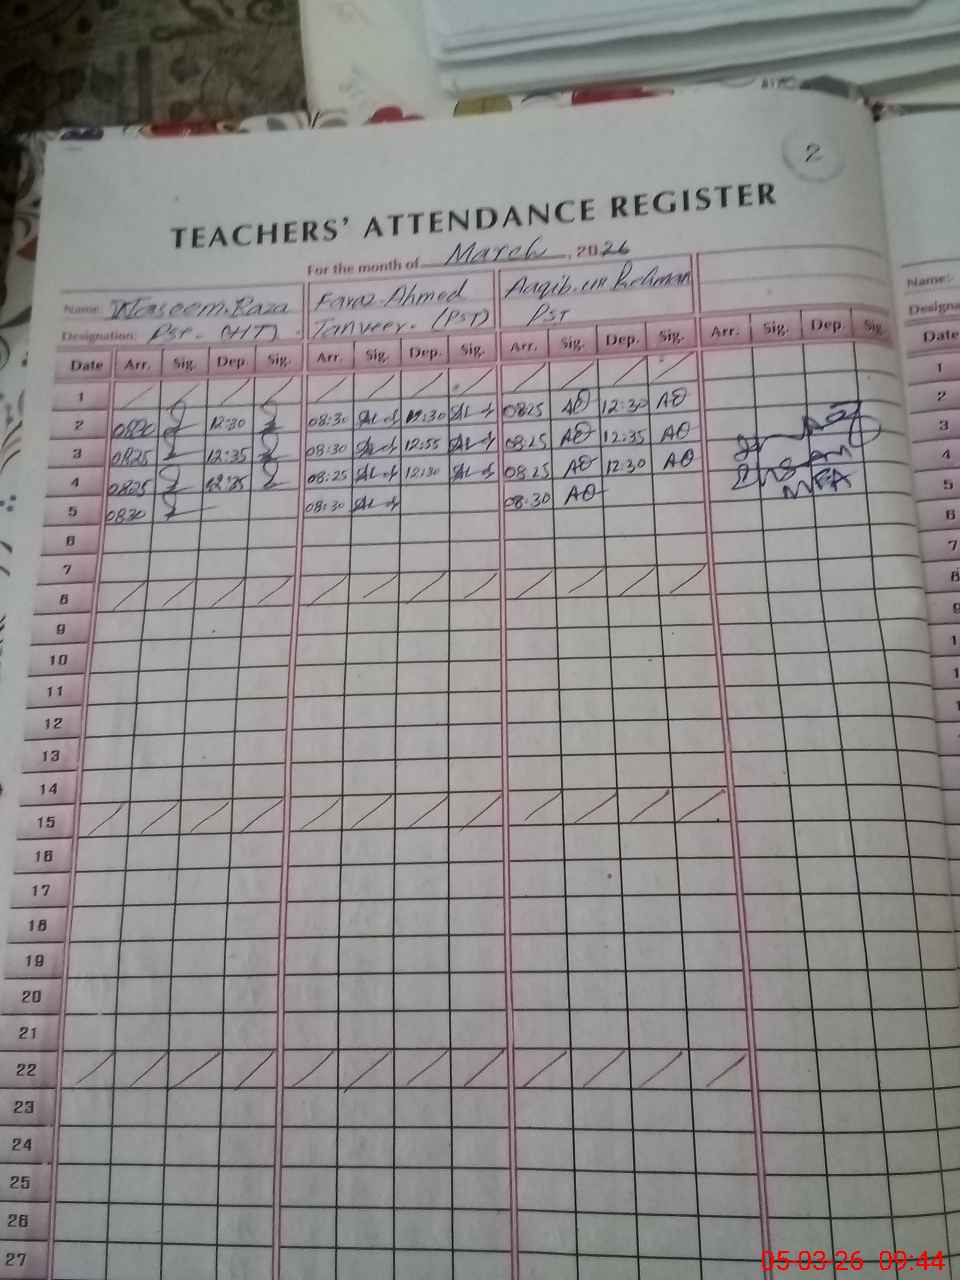 2
TEACHERS' ATTENDANCE REGISTER
For the month of March, 2026
Name: Waseem Raza Faraz Ahmed Aaqib ur Rehman
Designation: PST. (HT) Tanveer. (PST) PST
Date Arr. Sig. Dep. Sig. Arr. Sig. Dep. Sig. Arr. Sig. Dep. Sig. Arr. Sig. Dep. Sig.
1
2 0830 12:30 08:30 12:30 0825 AO 12:30 AO
3 0825 12:35 08:30 12:55 08:25 AO 12:35 AO
4 0825 12:35 08:25 12:30 08:25 AO 12:30 AO
5 0830 08:30 08:30 AO
6
7
8
9
10
11
12
13
14
15
16
17
18
19
20
21
22
23
24
25
26
27
MEA
Name:
Designa
Date
1
2
3
4
5
6
7
8
9
05-03-26 09:44